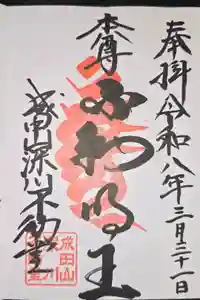 奉拝令和八年三月二十一日
本尊
不動明王
深川不動堂
成田山